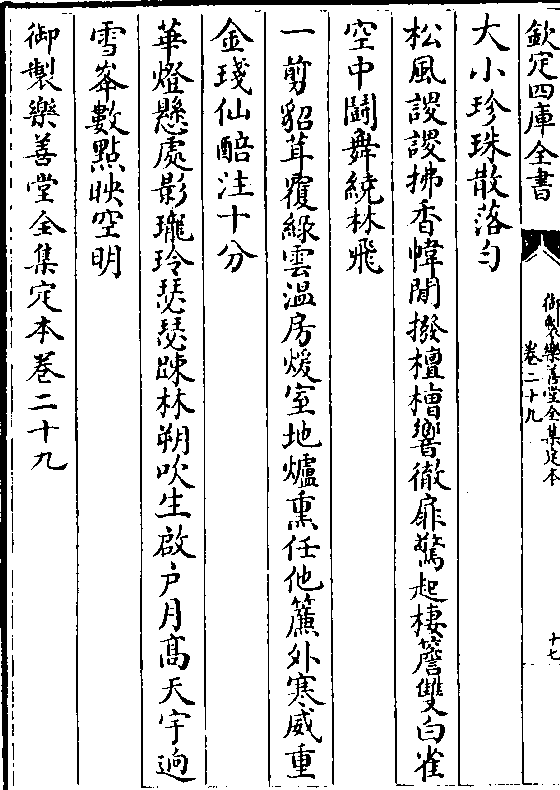 欽定四庫全書
御製樂善堂全集定本
卷二十九
十七
大小珍珠散落勻
松風謖謖拂香幃閒撥檀槽響徹扉驚起棲簷雙白雀
空中鬭舞繞林飛
一剪貂茸覆綠雲溫房煖室地爐熏任他簾外寒威重
金琖仙醅注十分
華燈懸處影瓏玲瑟瑟踈林朔吹生啟戶月高天宇迥
雪峯數點映空明
御製樂善堂全集定本卷二十九